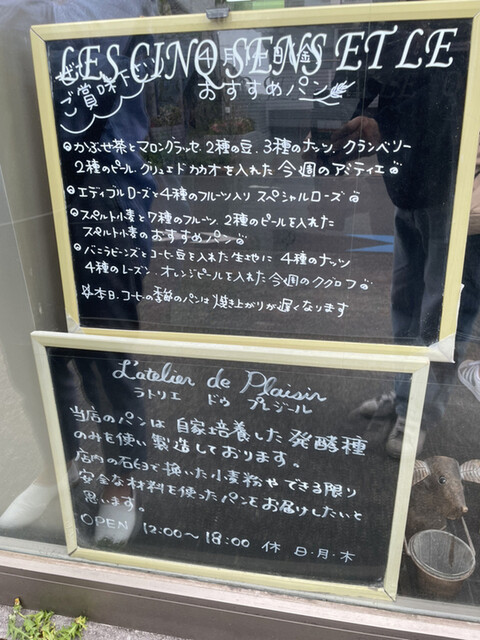 LES CINQ SENS ET LE
ぜひ 十月 日(金)
ご賞味下さい
おすすめパン
かぶせ茶とマロングラッセ、2種の豆、3種のナッツ、クランベリー
2種のピール、グリュエドカカオを入れた 今週のアミティエ
エディブルローズと4種のフルーツ入り スペシャルローズ
スペルト小麦と7種のフルーツ、2種のピールを入れた
スペルト小麦のおすすめパン
バニラビーンズとコーヒー豆を入れた生地に 4種のナッツ
4種のレーズン、オレンジピールを入れた 今週のクグロフ
本日、コーヒーの季節のパンは 焼き上がりが遅くなります
L'atelier de Plaisir
ラトリエ ドゥ プレジール
当店のパンは 自家培養した 発酵種
のみを使い 製造しております。
店内の石臼で挽いた小麦粉や できる限り
安全な材料を使ったパンをお届けしたいと
思います。
OPEN 12:00〜18:00 休 日・月・木